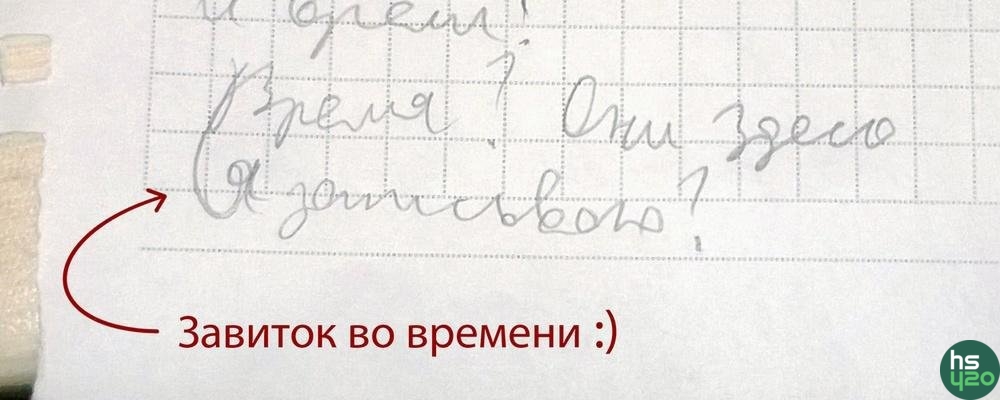 и время!
Время? Они здесь
Я записываю?
Завиток во времени :)
hs
420